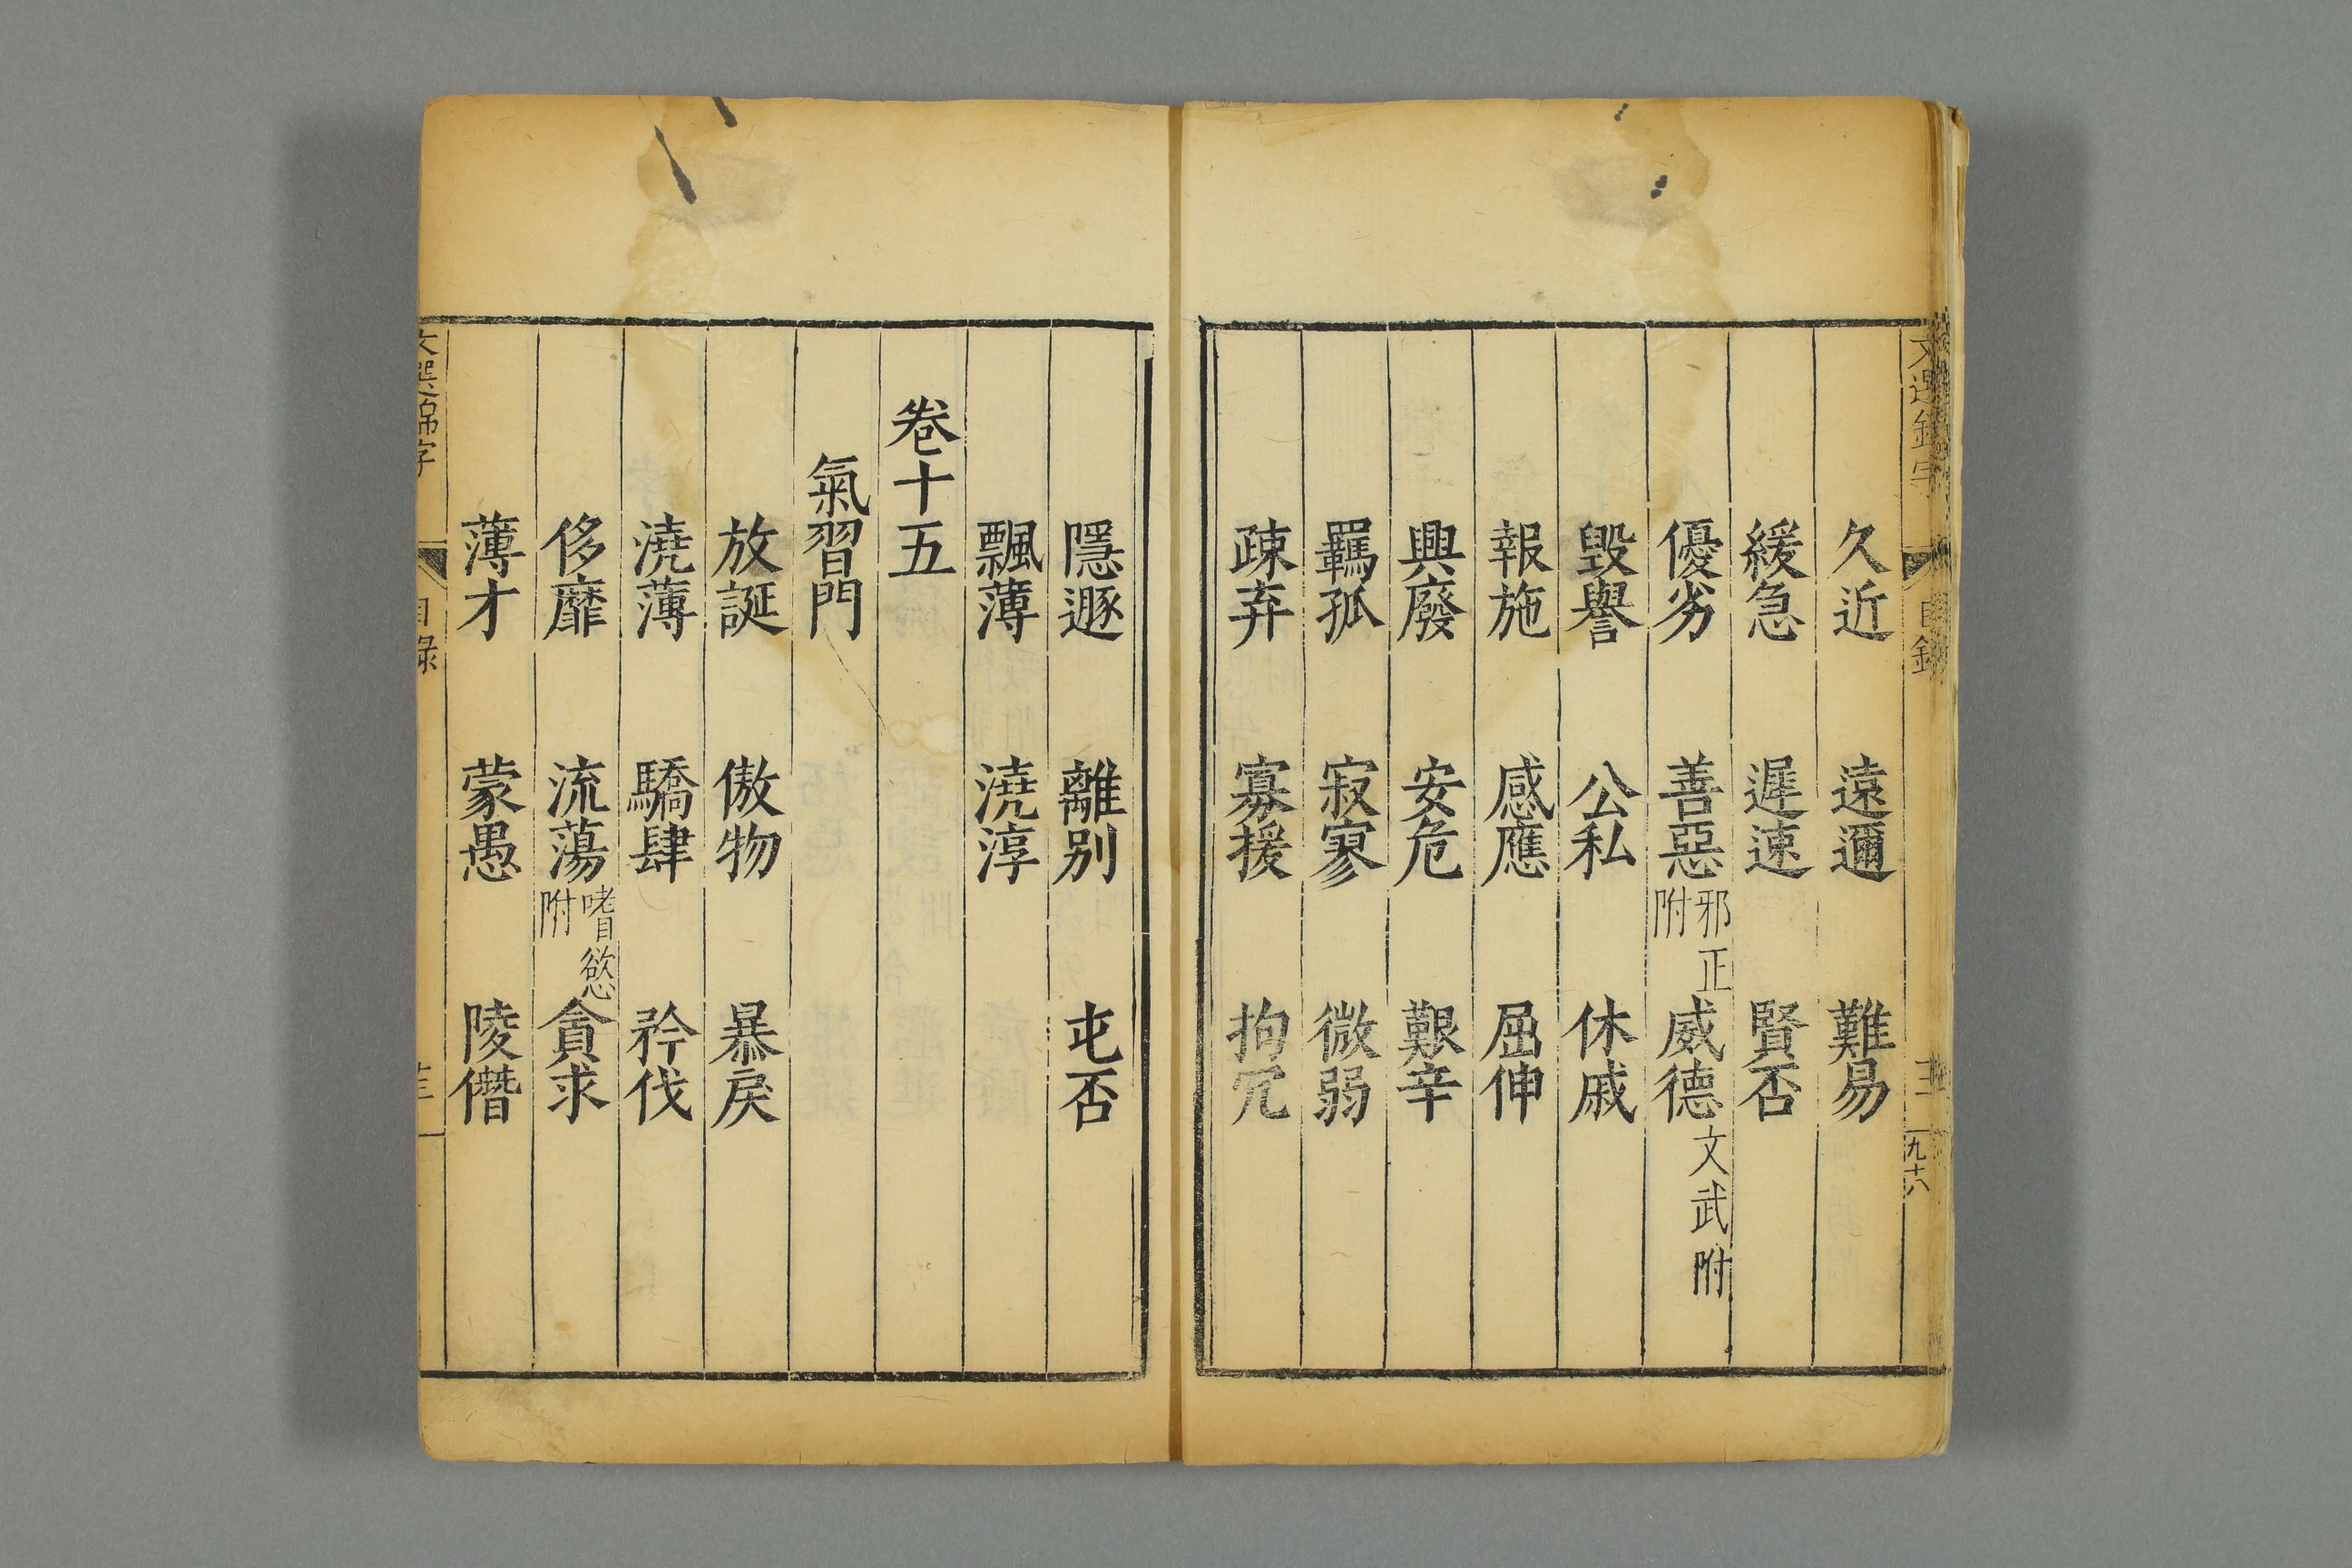 文選錦字
目錄
九十八
久近 遠邇 難易
緩急 遲速 賢否
優劣 善惡 邪正附 威德 文武附
毀譽 公私 休戚
報施 感應 屈伸
興廢 安危 艱辛
羈孤 寂寥 微弱
疎弃 寡援 拘冗
隱遯 離別 屯否
飄薄 澆淳
卷十五
氣習門
放誕 傲物 暴戾
澆薄 驕肆 矜伐
侈靡 流蕩 嗜慾附 貪求
薄才 蒙愚 陵僭
文選錦字
目錄